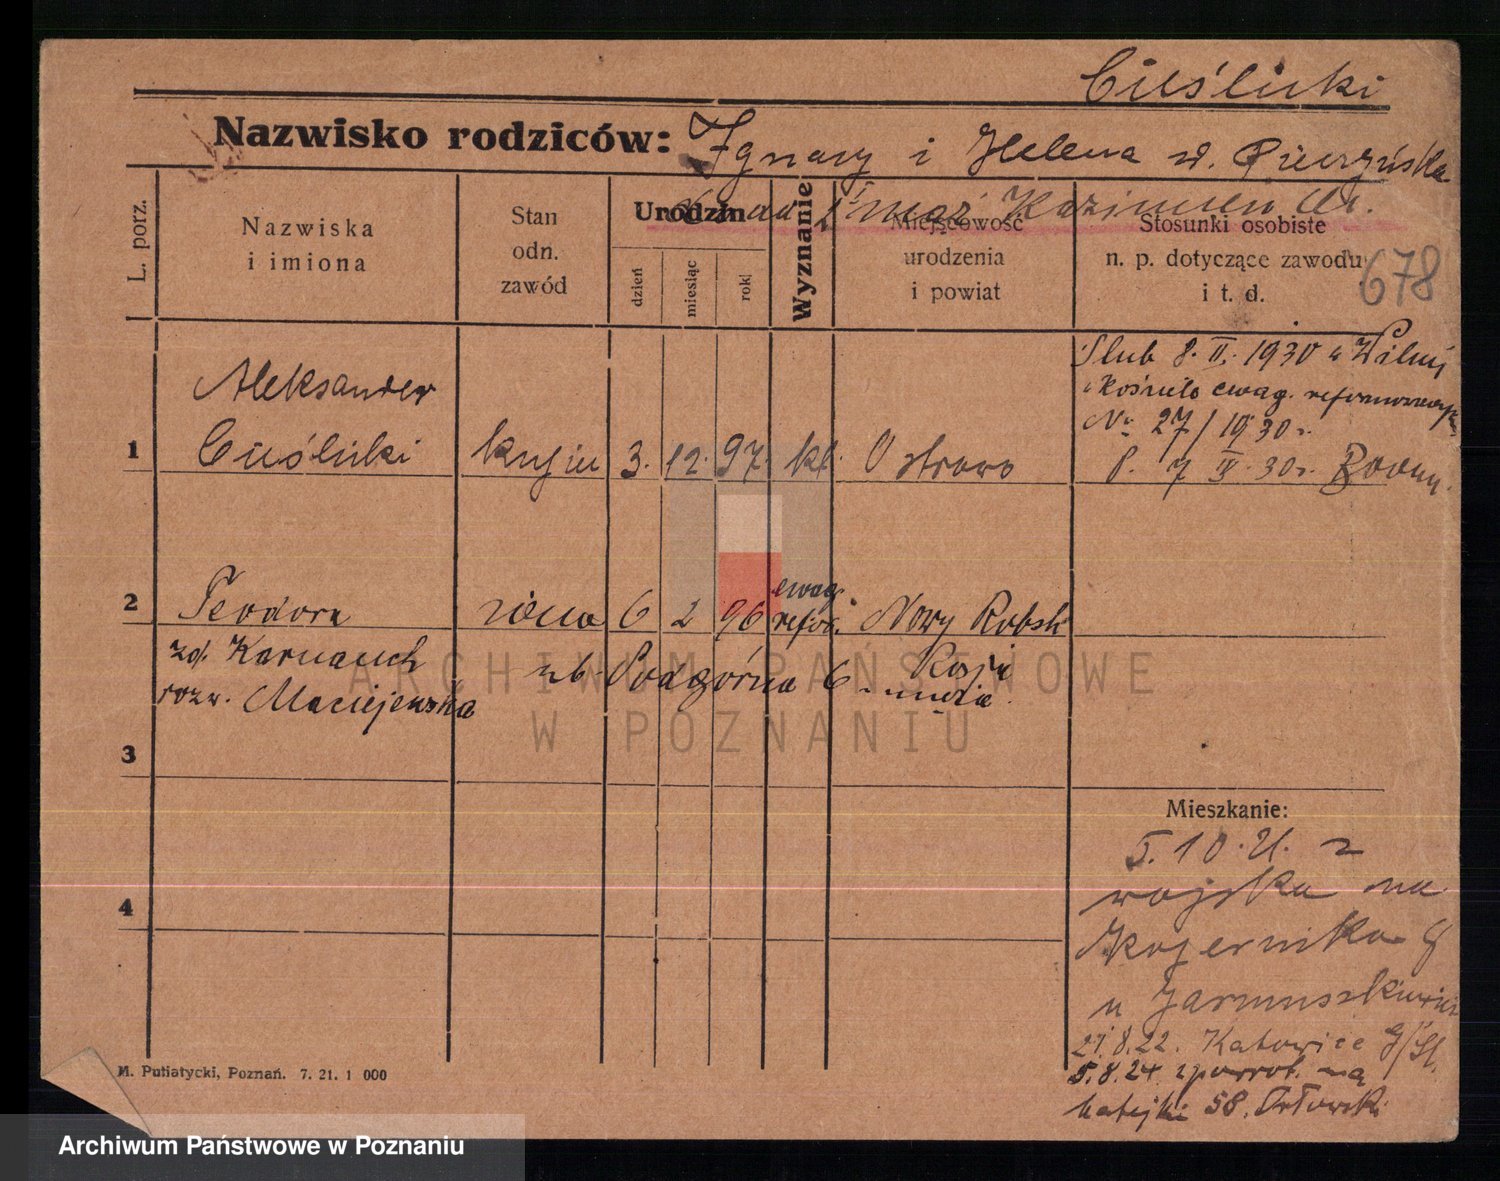 Cieślicki
Nazwisko rodziców: Ignacy i Helena
mąż Kazimierz
L. porz.
Nazwiska
i imiona
Stan
odn.
zawód
Urodzin
dzień
miesiąc
rok
Wyznanie
Miejscowość
urodzenia
i powiat
Stosunki osobiste
n. p. dotyczące zawodu
i t. d.
678
Ślub 8. II. 1930 w Wilnie
ewag. reformowany
Nr 27/1930 r.
7 IV. 30 r.
Aleksander
1 Cieślicki 3. 12. 97. kt. Ostrowo
2 Teodora żona 6 2 96 ewag. refor. Nowy
zd. Karnauch
rozw. Maciejewska
ul. Podgórna 6 Rosja
3
4
Mieszkanie:
5. 10. 21. z
wojska na
Kopernika 8
u Jarmuszkiewicz
21.8.22. Katowice G/Śl.
5.8.24. zpowrot. na
Ratajki 58. Orłowski
M. Putiatycki, Poznań. 7. 21. 1 000
ARCHIWUM PAŃSTWOWE
W POZNANIU
Archiwum Państwowe w Poznaniu